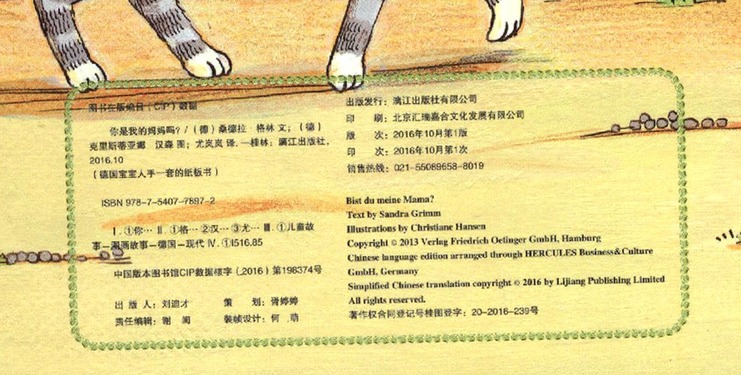 图书在版编目(CIP)数据
你是我的妈妈吗?/(德)桑德拉·格林文;(德)
克里斯蒂亚娜·汉森图;尤岚岚译.—桂林:漓江出版社,
2016.10
(德国宝宝人手一套的纸板书)
ISBN 978-7-5407-7897-2
Ⅰ.①你… Ⅱ.①格…②汉…③尤… Ⅲ.①儿童故
事—图画故事—德国—现代 Ⅳ.①I516.85
中国版本图书馆CIP数据核字(2016)第198374号
出 版 人:刘迪才 策 划:胥婷婷
责任编辑:谢 闻 装帧设计:何 萌
出版发行:漓江出版社有限公司
印 刷:北京汇瑞嘉合文化发展有限公司
版 次:2016年10月第1版
印 次:2016年10月第1次
销售热线:021-55089658-8019
Bist du meine Mama?
Text by Sandra Grimm
Illustrations by Christiane Hansen
Copyright © 2013 Verlag Friedrich Oetinger GmbH, Hamburg
Chinese language edition arranged through HERCULES Business&Culture
GmbH, Germany
Simplified Chinese translation copyright © 2016 by Lijiang Publishing Limited
All rights reserved.
著作权合同登记号桂图登字:20-2016-239号